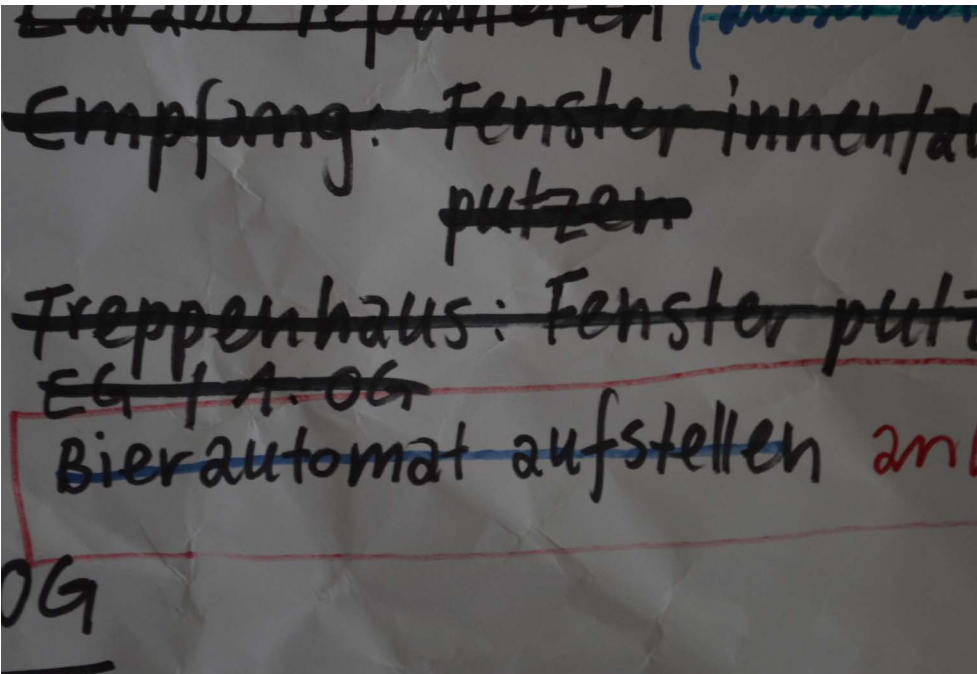 Lavabo reparieren
Empfang: Fenster innen/au
putzen
Treppenhaus: Fenster putz
EG / 1. OG
Bierautomat aufstellen an
OG